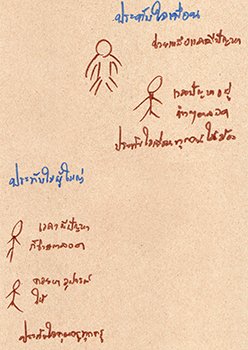 ประทับใจเพื่อน
ช่วยเหลือเวลามีปัญหา
เวลามีปัญหาอยู่
ข้างๆตลอด
ประทับใจเพื่อนทุกคนในห้อง
ประทับใจผู้ใหญ่
เวลามีปัญหา
ก็ช่วยตลอด
คอยหาอุปกรณ์
ให้
ประทับใจคุณครูทุกครู